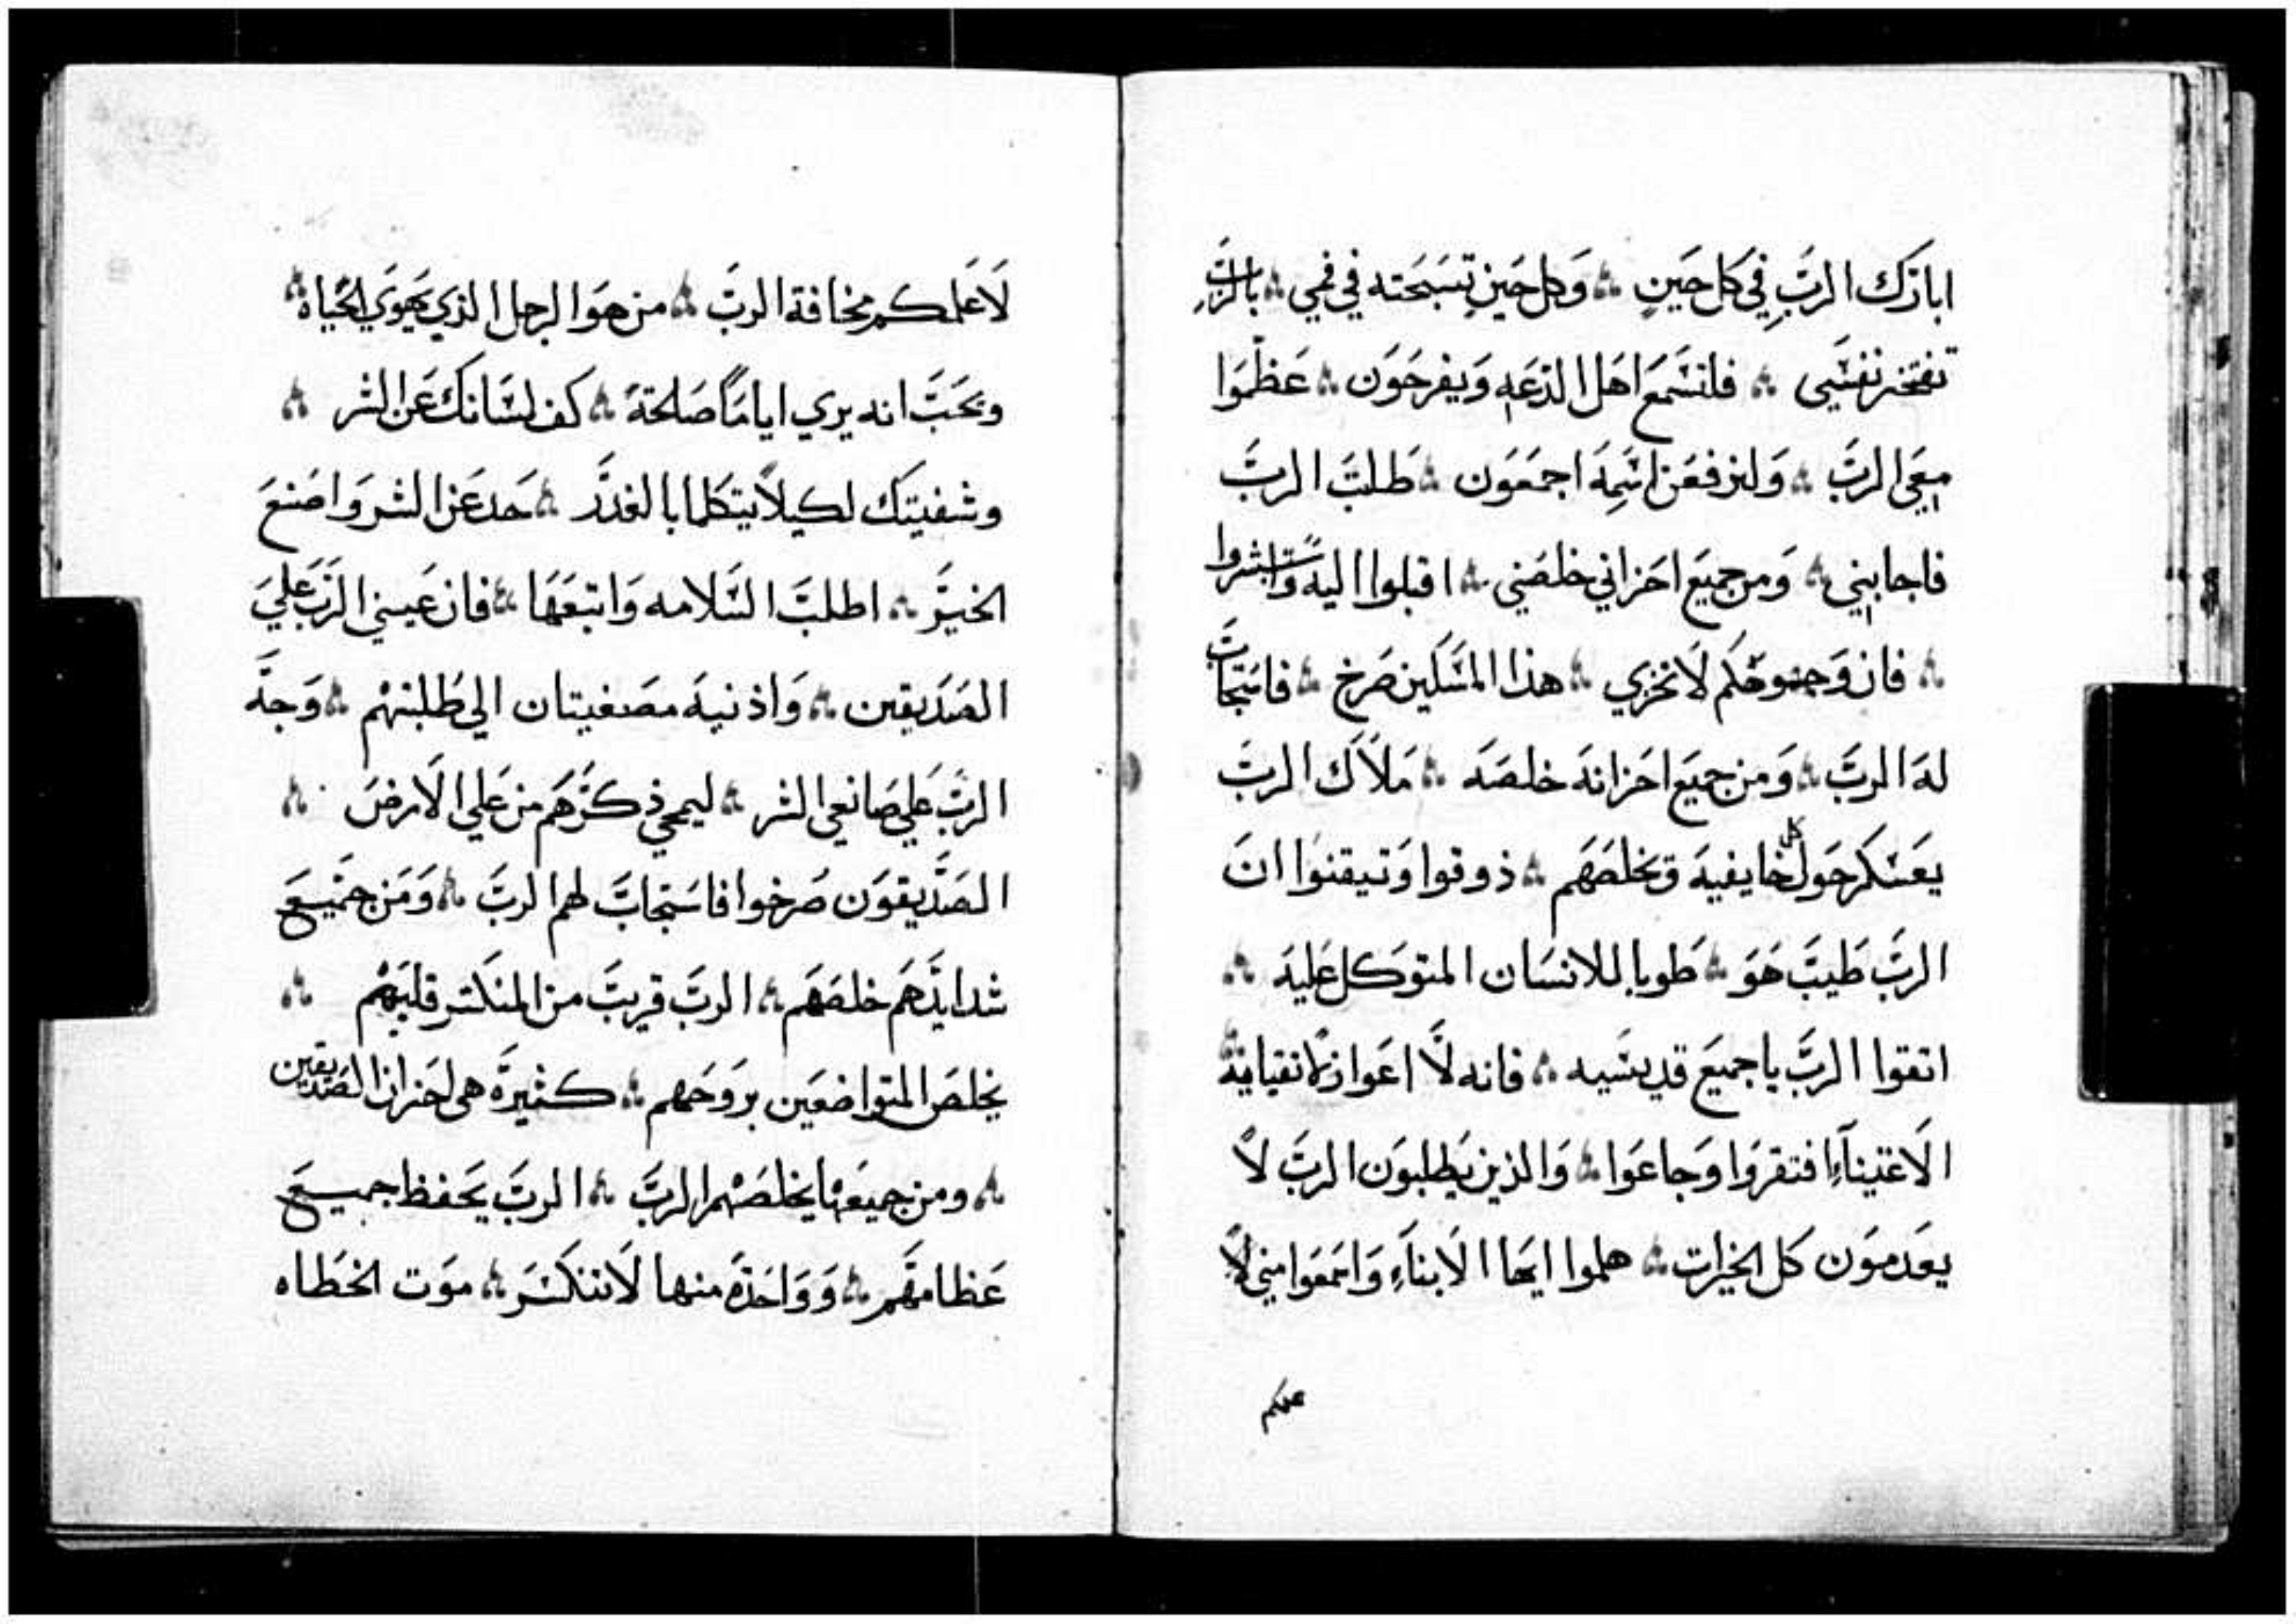 ابارك الرب في كل حين ∴ وكل حين تسبحته في فمي ∴ بالرب
تفتخر نفسي ∴ فلتسمع اهل الدعه ويفرحون ∴ عظموا
معي الرب ∴ ولنرفعن اسمه اجمعون ∴ طلبت الرب
فاجابني ∴ ومن جميع احزاني خلصني ∴ اقبلوا اليه واستبشروا
∴ فان وجوهكم لا تخزي ∴ هذا المسكين صرخ ∴ فاستجاب
له الرب ∴ ومن جميع احزانه خلصه ∴ ملاك الرب
يعسكر حول كل خايفيه وتخلصهم ∴ ذوقوا وتيقنوا ان
الرب طيب هو ∴ طوبا للانسان المتوكل عليه ∴
اتقوا الرب يا جميع قديسيه ∴ فانه لا اعواز لاتقيايه ∴
الاغنيآء افتقروا وجاعوا ∴ والذين يطلبون الرب لا
يعدمون كل الخيرات ∴ هلموا ايها الابنآء واسمعوا مني لا
علمكم
لاعلمكم مخافة الرب ∴ من هوا الرجل الذي يهوي الحياه ∴
ويحب انه يري اياما صالحة ∴ كف لسانك عن الشر ∴
وشفيتك لكيلا يتكلما بالغدر ∴ حد عن الشر واصنع
الخير ∴ اطلب السلامه واتبعها ∴ فان عيني الرب علي
الصديقين ∴ واذنيه مصغيتان الي طلبتهم ∴ وجه
الرب علي صانعي الشر ∴ ليمحي ذكرهم من علي الارض ∴
الصديقون صرخوا فاستجاب لهم الرب ∴ ومن جميع
شدايدهم خلصهم ∴ الرب قريب من المنكسر قلبهم ∴
يخلص المتواضعين بروحهم ∴ كثيرة هي احزان الصديقين
∴ ومن جميعها يخلصهم الرب ∴ الرب يحفظ جميع
عظامهم ∴ وواحدة منها لا تنكسر ∴ موت الخطاه